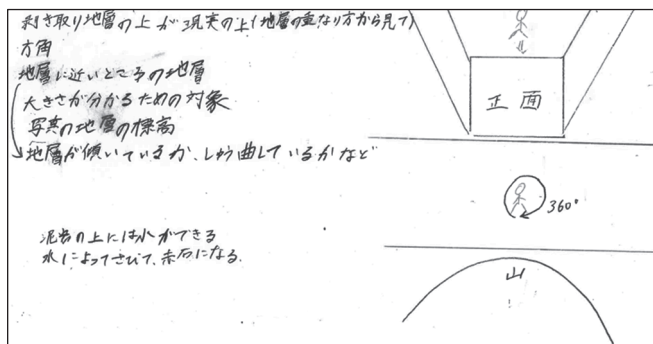 剥ぎ取り地層の上が現実の上(地層の重なり方から見て)
方角
地層に近いところの地層
大きさが分かるための対象
写真の地層の標高
地層が傾いているか、しゅう曲しているかなど
泥岩の上には水ができる
水によってさびて、赤石になる。
正面
360°
山